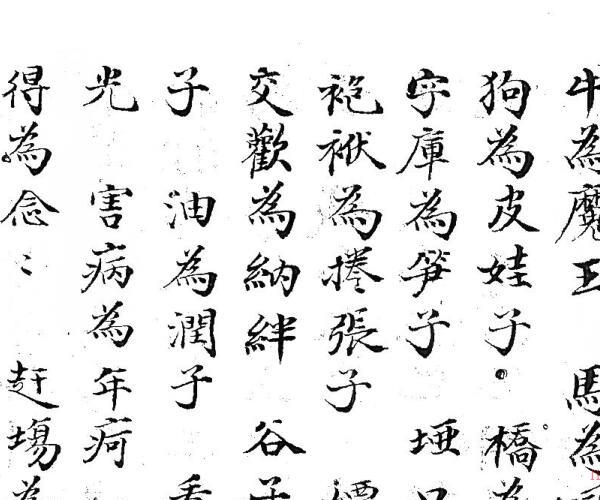 牛為魔王 馬為
狗為皮娃子。橋為
字庫為笋子 埡口
袍袱為捲張子
交歡為納絆 谷子
子 油為潤子
光 害病為年疴
得為念〻 赶場為